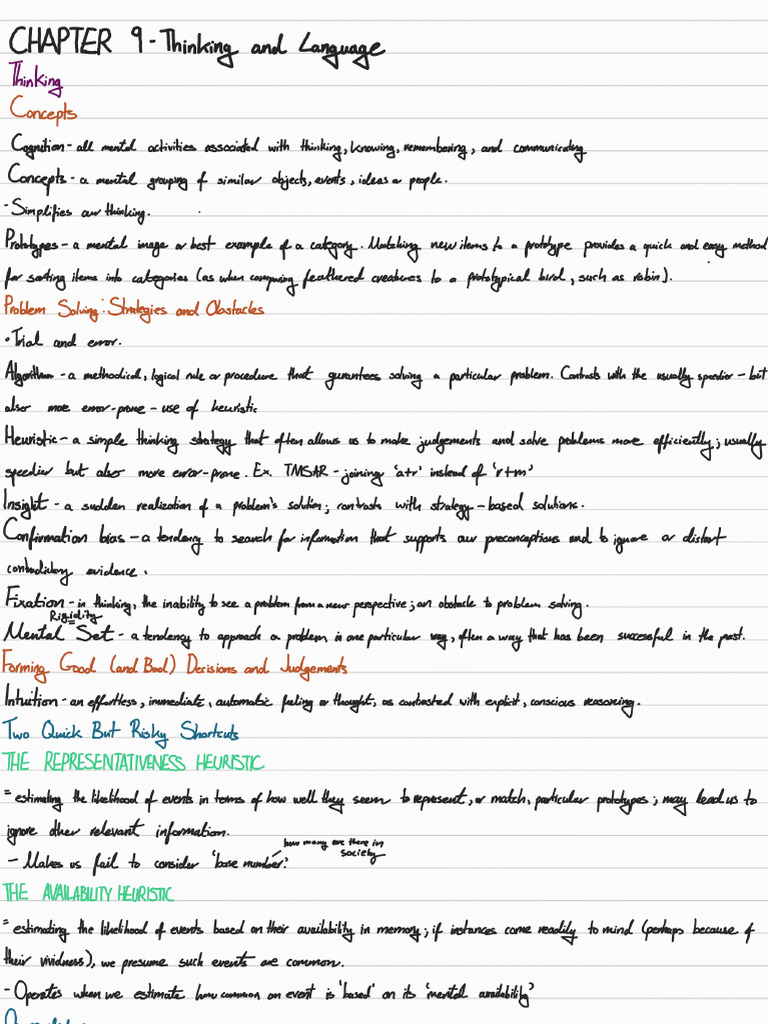 CHAPTER 9 - Thinking and Language
Thinking
Concepts
Cognition - all mental activities associated with thinking, knowing, remembering, and communicating
Concepts - a mental grouping of similar objects, events, ideas or people.
- Simplifies our thinking.
Prototypes - a mental image or best example of a category. Matching new items to a prototype provides a quick and easy method
for sorting items into categories (as when comparing feathered creatures to a prototypical bird, such as robin).
Problem Solving: Strategies and Obstacles
• Trial and error.
Algorithm - a methodical, logical rule or procedure that gurantees solving a particular problem. Contrasts with the usually speedier - but
also more error-prone - use of heuristic
Heuristic - a simple thinking strategy that often allows us to make judgements and solve problems more efficiently; usually
speedier but also more error-prone. Ex. TMSAR - joining 'a+r' instead of 'r+m'
Insight - a sudden realization of a problem's solution; contrasts with strategy-based solutions.
Confirmation bias - a tendency to search for information that supports our preconceptions and to ignore or distort
contradictory evidence.
Fixation - in thinking, the inability to see a problem from a new perspective; an obstacle to problem solving.
Rigidity
Mental Set - a tendency to approach a problem in one particular way, often a way that has been successful in the past.
Forming Good (and Bad) Decisions and Judgements
Intuition - an effortless, immediate, automatic feeling or thought, as contrasted with explicit, conscious reasoning.
Two Quick But Risky Shortcuts
THE REPRESENTATIVENESS HEURISTIC
= estimating the likelihood of events in terms of how well they seem to represent, or match, particular prototypes; may lead us to
ignore other relevant information.
how many are there in
society
- Makes us fail to consider 'base number'.
THE AVAILABILITY HEURISTIC
= estimating the likelihood of events based on their availability in memory; if instances come readily to mind (perhaps because of
their vividness), we presume such events are common.
- Operates when we estimate how common an event is 'based' on its 'mental availability'